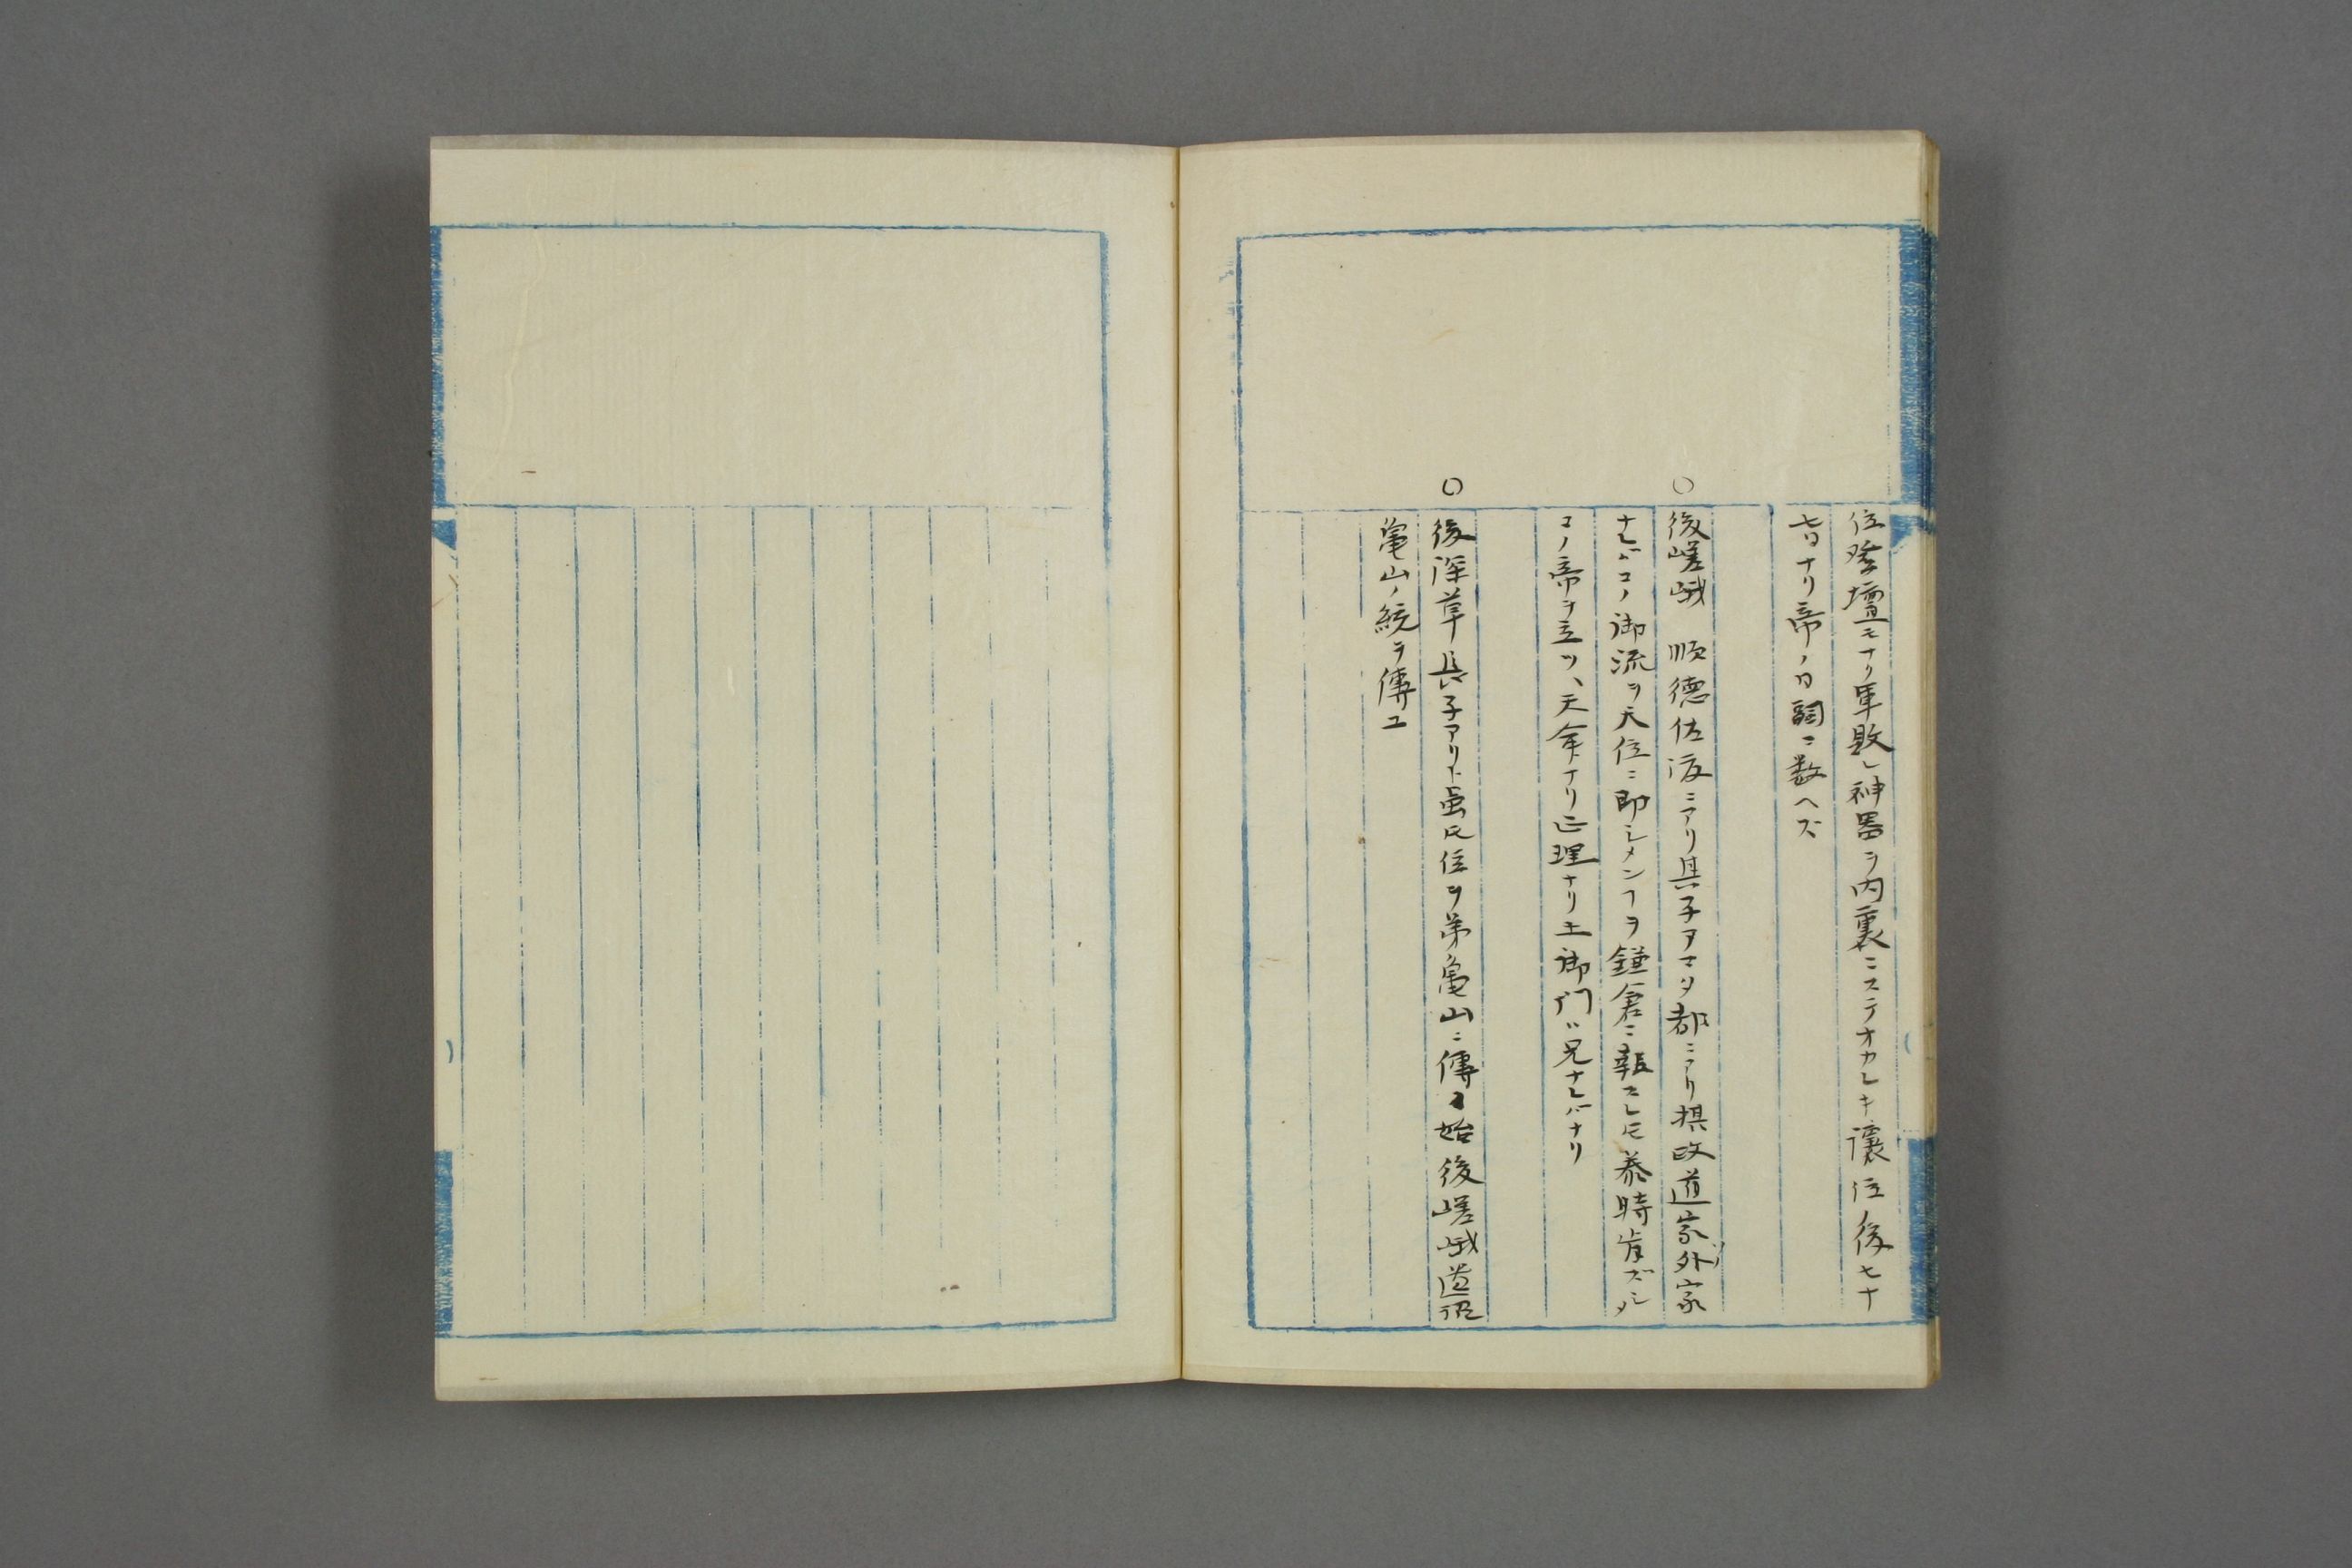 位登壇モナク軍敗レ神器ヲ内裏ニステオカレキ譲位後七十
七日ナリ帝ノ日嗣ニ数ヘズ
○後嵯峨　順徳佐渡ニアリ其子アマタ都ニアリ摂政道家外家ノ
ナレバコノ御流ヲ天位ニ即シメンヿヲ鎌倉ニ報スレ𪜈泰時肯ズシメ
コノ帝ヲ立ツ、天命ナリ正理ナリ土御門ハ兄ナレバナリ
○後深草　其子アリト虽𪜈位ヲ弟亀山ニ傳フ始後嵯峨遺詔
亀山ノ統ヲ傳ユ